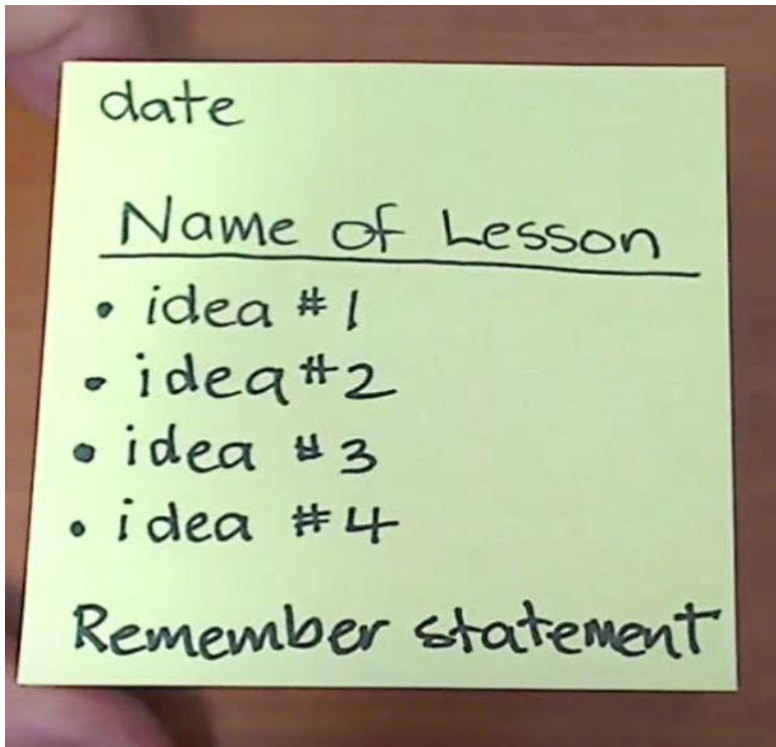 date
Name of Lesson
• idea #1
• idea #2
• idea #3
• idea #4
Remember statement